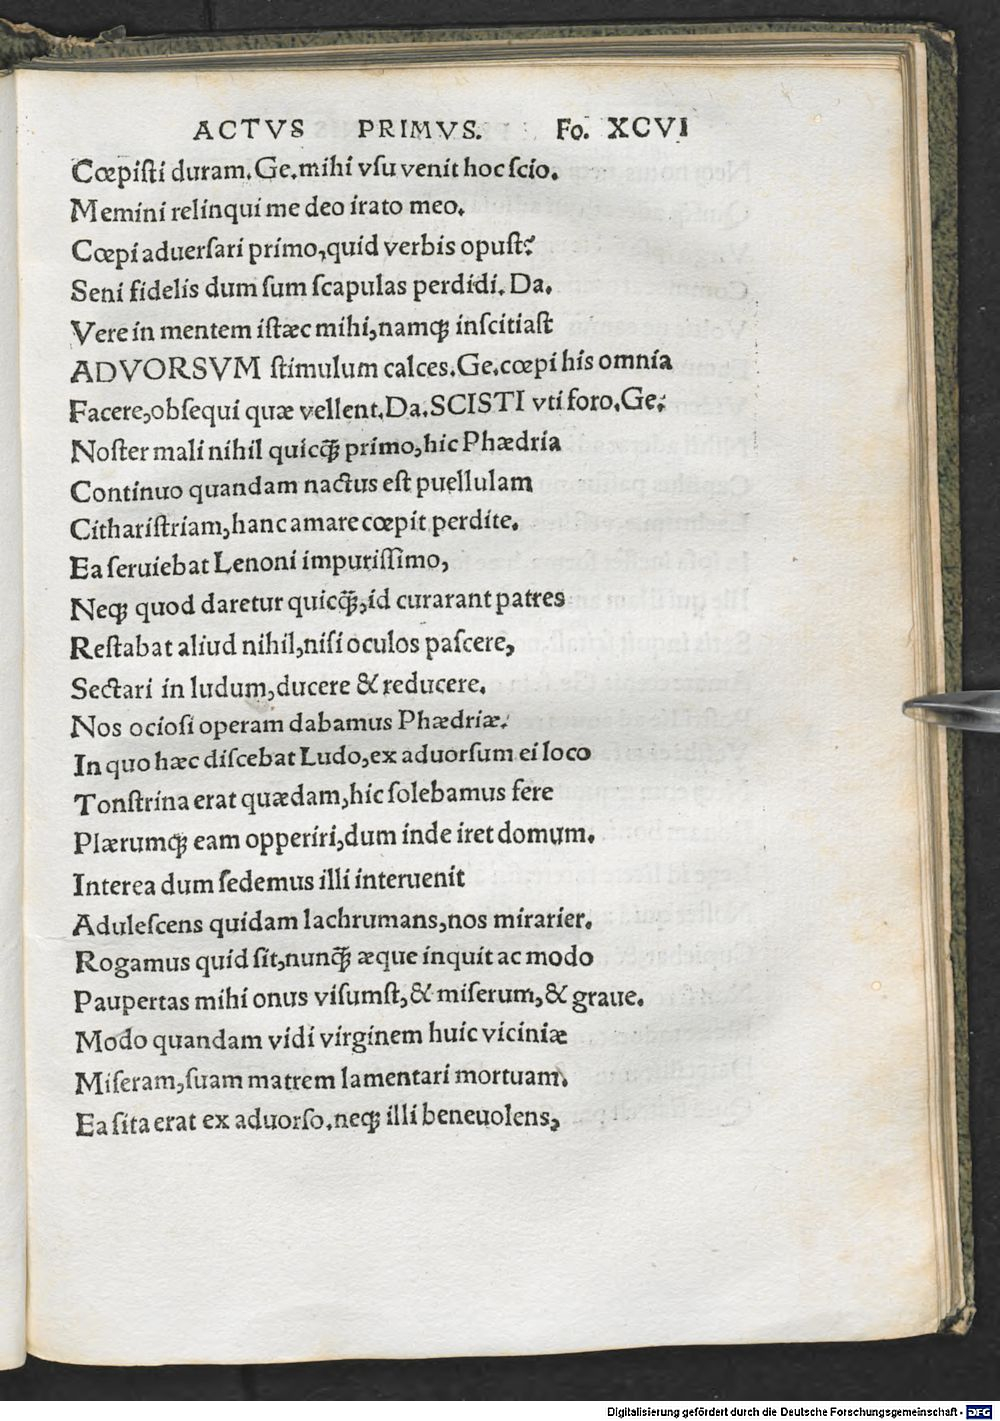 ACTVS PRIMVS. Fo. XCVI
Cœpiſti duram. Ge. mihi vſu venit hoc ſcio.
Memini relinqui me deo irato meo.
Cœpi aduerſari primo, quid verbis opuſt?
Seni fidelis dum ſum ſcapulas perdidi. Da.
Vere in mentem iſtæc mihi, namq; inſcitiaſt
ADVORSVM ſtimulum calces. Ge. cœpi his omnia
Facere, obſequi quæ vellent. Da. SCISTI vti foro. Ge:
Noſter mali nihil quicq̃; primo, hic Phædria
Continuo quandam nactus eſt puellulam
Cithariſtriam, hanc amare cœpit perdite.
Ea ſeruiebat Lenoni impuriſſimo,
Neq; quod daretur quicq̃;, id curarant patres
Reſtabat aliud nihil, niſi oculos paſcere,
Sectari in ludum, ducere & reducere.
Nos ocioſi operam dabamus Phædriæ:
In quo hæc diſcebat Ludo, ex aduorſum ei loco
Tonſtrina erat quædam, hic ſolebamus fere
Plærumq; eam opperiri, dum inde iret domum.
Interea dum ſedemus illi interuenit
Aduleſcens quidam lachrumans, nos mirarier.
Rogamus quid ſit, nunq̃; æque inquit ac modo
Paupertas mihi onus viſumſt, & miſerum, & graue.
Modo quandam vidi virginem huic viciniæ
Miſeram, ſuam matrem lamentari mortuam.
Ea ſita erat ex aduorſo. neq; illi beneuolens,
Digitalisierung gefördert durch die Deutsche Forschungsgemeinschaft - DFG